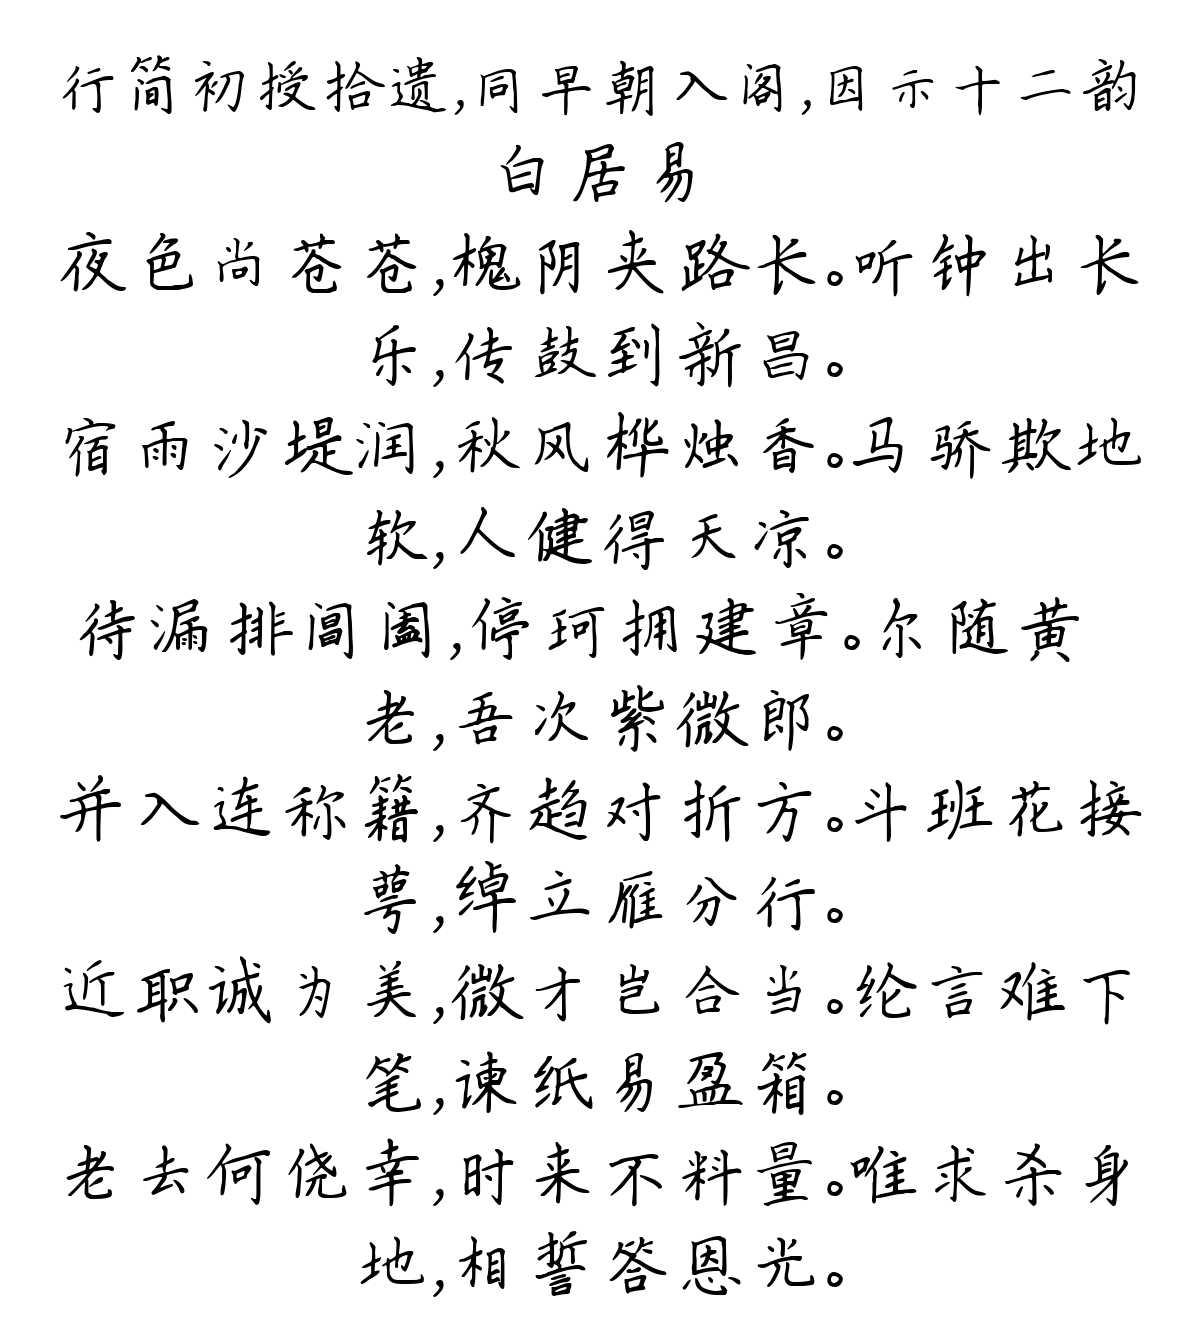 行简初授拾遗,同早朝入阁,因示十二韵
白居易
夜色尚苍苍,槐阴夹路长。听钟出长
乐,传鼓到新昌。
宿雨沙堤润,秋风桦烛香。马骄欺地
软,人健得天凉。
待漏排阊阖,停珂拥建章。尔随黄
老,吾次紫微郎。
并入连称籍,齐趋对折方。斗班花接
萼,绰立雁分行。
近职诚为美,微才岂合当。纶言难下
笔,谏纸易盈箱。
老去何侥幸,时来不料量。唯求杀身
地,相誓答恩光。